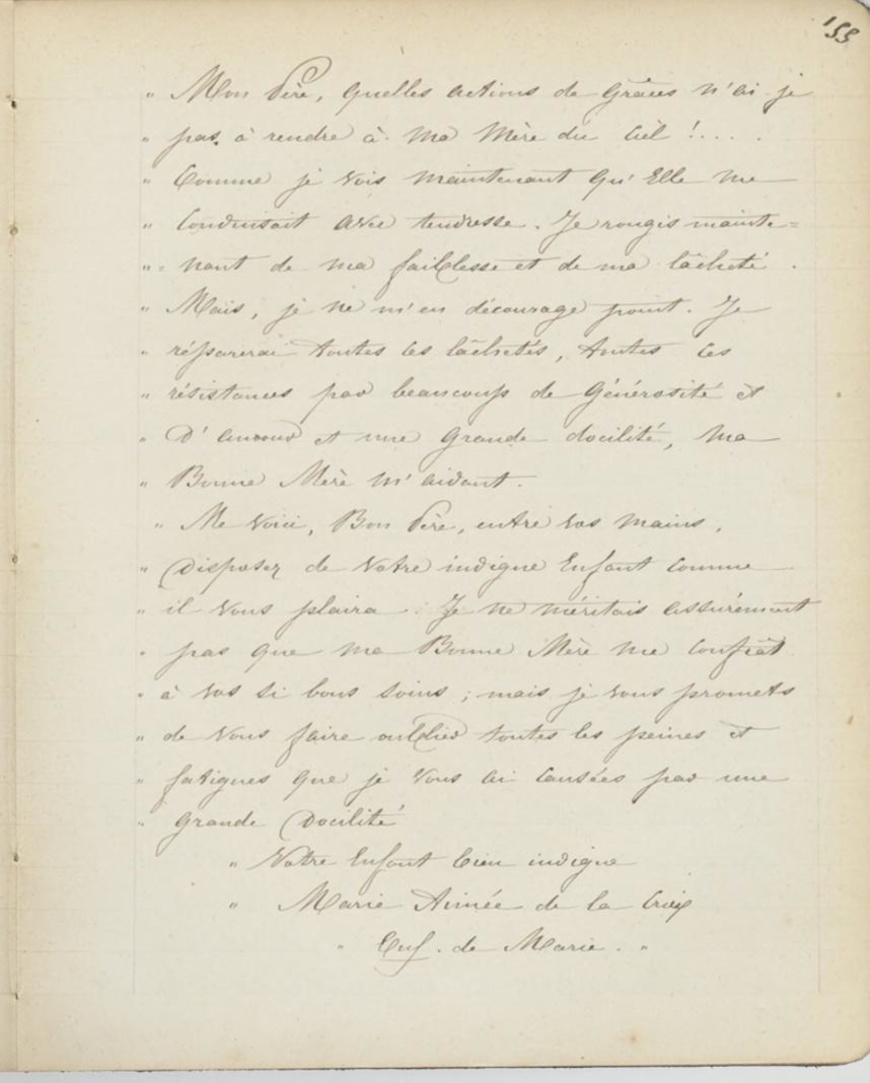 155
" Mon Père, quelles actions de Grâces n'ai-je
" pas à rendre à ma Mère du Ciel !....
" Comme je vois maintenant qu'Elle me
" Conduisait avec tendresse. Je rougis mainte=
" = nant de ma faiblesse et de ma lâcheté.
" Mais, je ne m'en décourage point. Je
" réparerai toutes les lâchetés, toutes les
" résistances par beaucoup de Générosité et
" D'amour et une Grande docilité, ma
" Bonne Mère m'aidant.
" Me voici, Bon Père, entre vos mains,
" Disposez de Votre indigne Enfant comme
" il Vous plaira. Je ne méritais assurément
" pas que ma Bonne Mère me Confiât
" à vos si bons soins ; mais je vous promets
" de Vous faire oublier toutes les peines et
" fatigues que je Vous ai Causées par une
" Grande Docilité
" Votre Enfant bien indigne
" Marie Aimée de la Croix
" Enf. de Marie. "